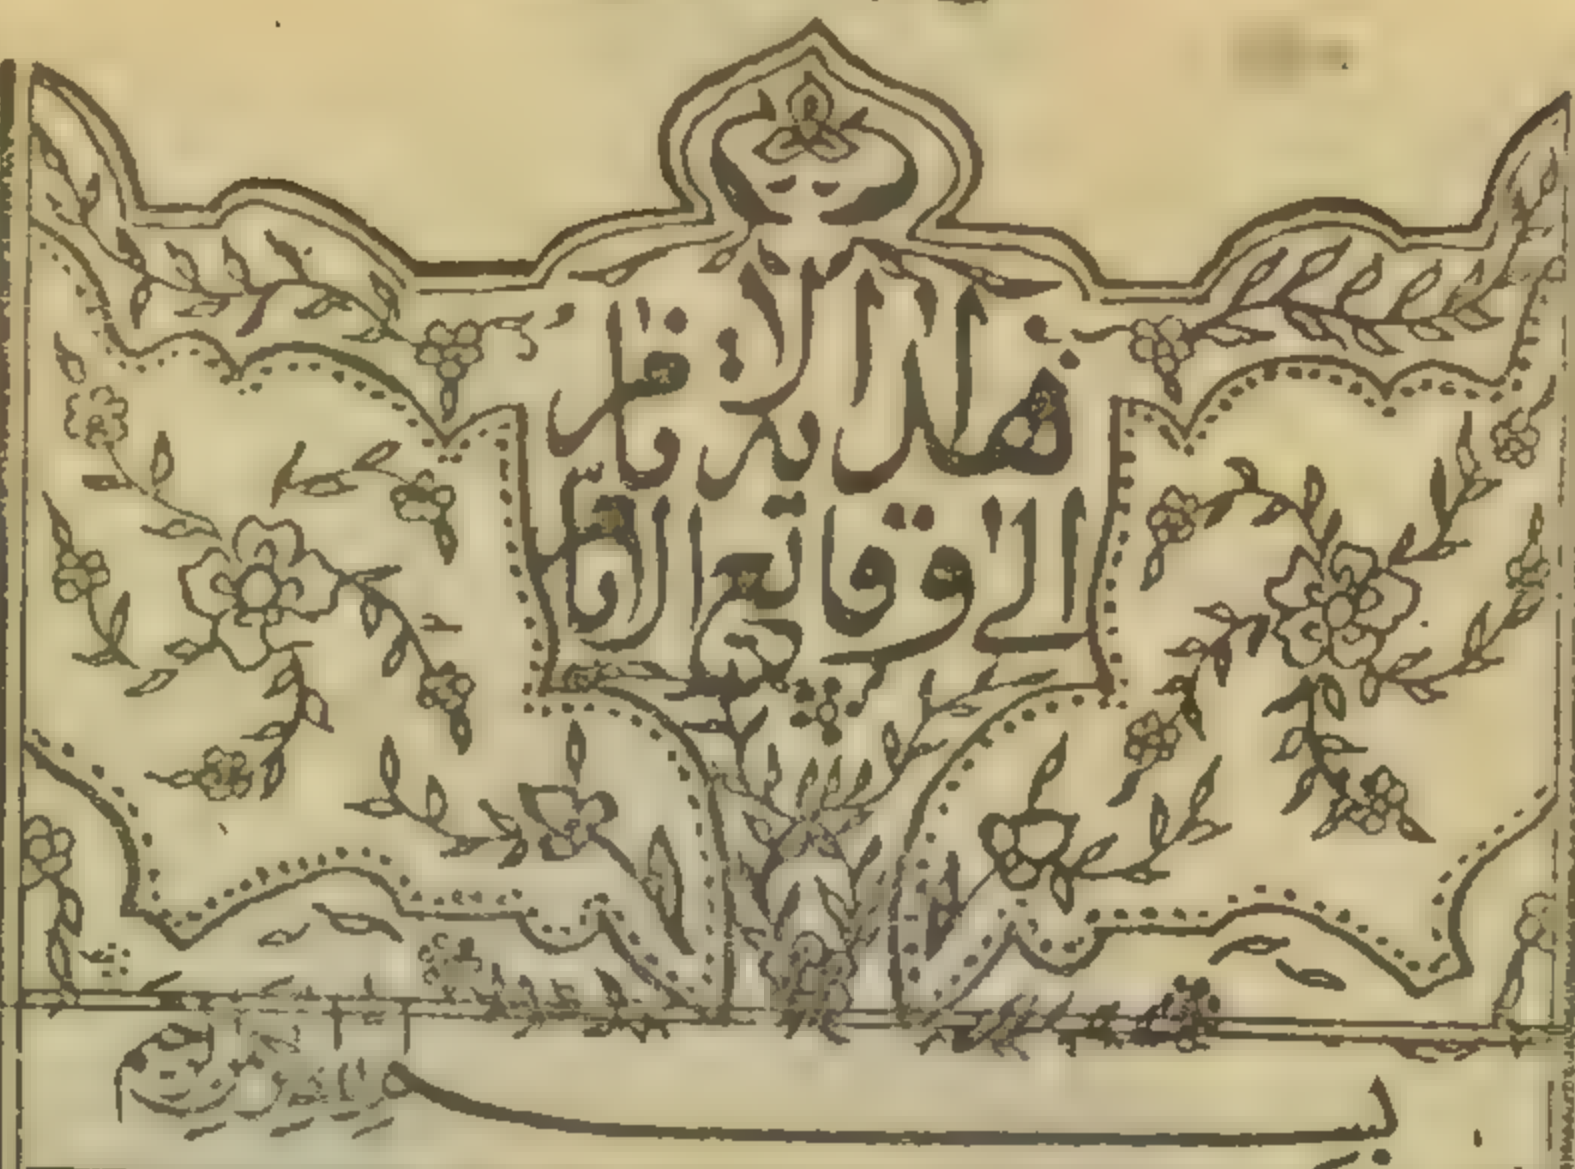 هداية الانام
الى وقايع الايام
بسم الله الرحمن الرحيم